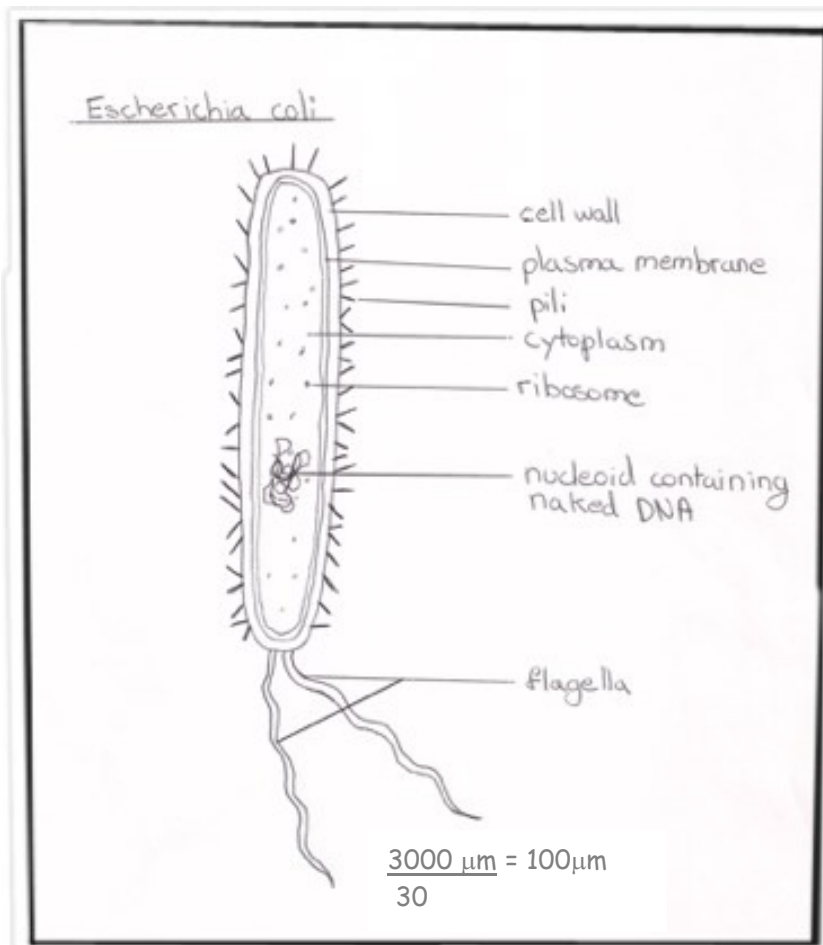 Escherichia coli
cell wall
plasma membrane
pili
cytoplasm
ribosome
nucleoid containing
naked DNA
flagella
3000 μm = 100μm
30